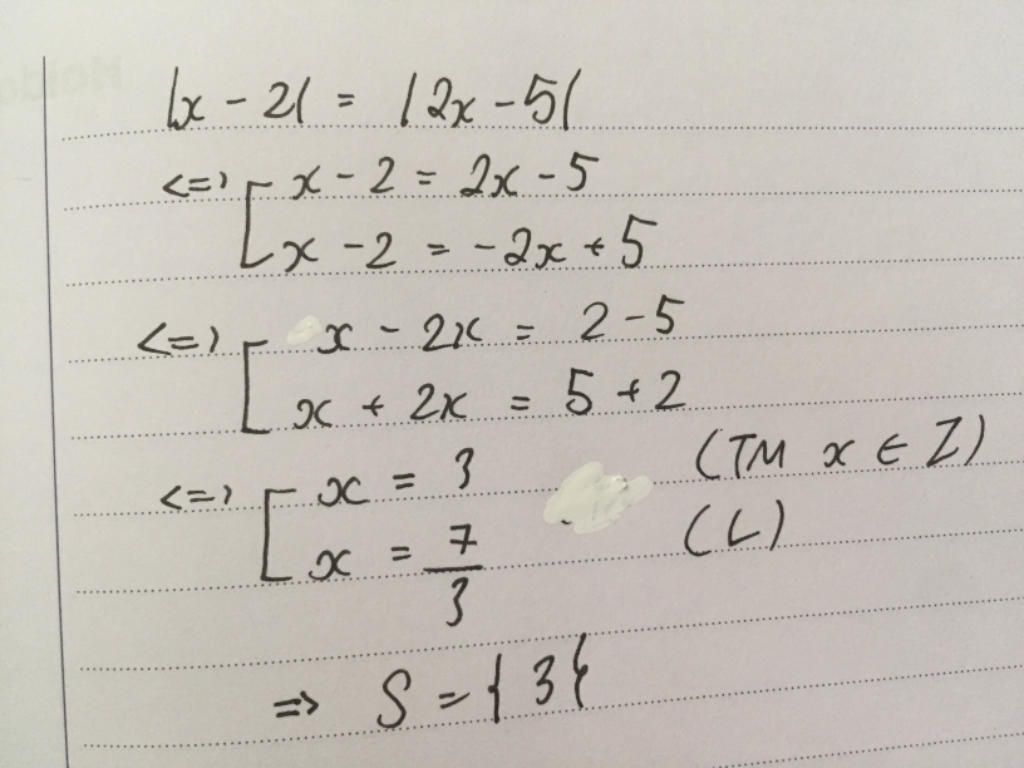 |x - 2| = |2x - 5|
<=> [ x - 2 = 2x - 5
x - 2 = -2x + 5
<=> [ x - 2x = 2 - 5
x + 2x = 5 + 2
<=> [ x = 3 (TM x ∈ Z)
x = 7/3 (L)
=> S = {3}